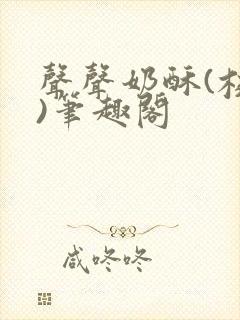 聲聲奶酥(校
)筆趣閣
咸咚咚